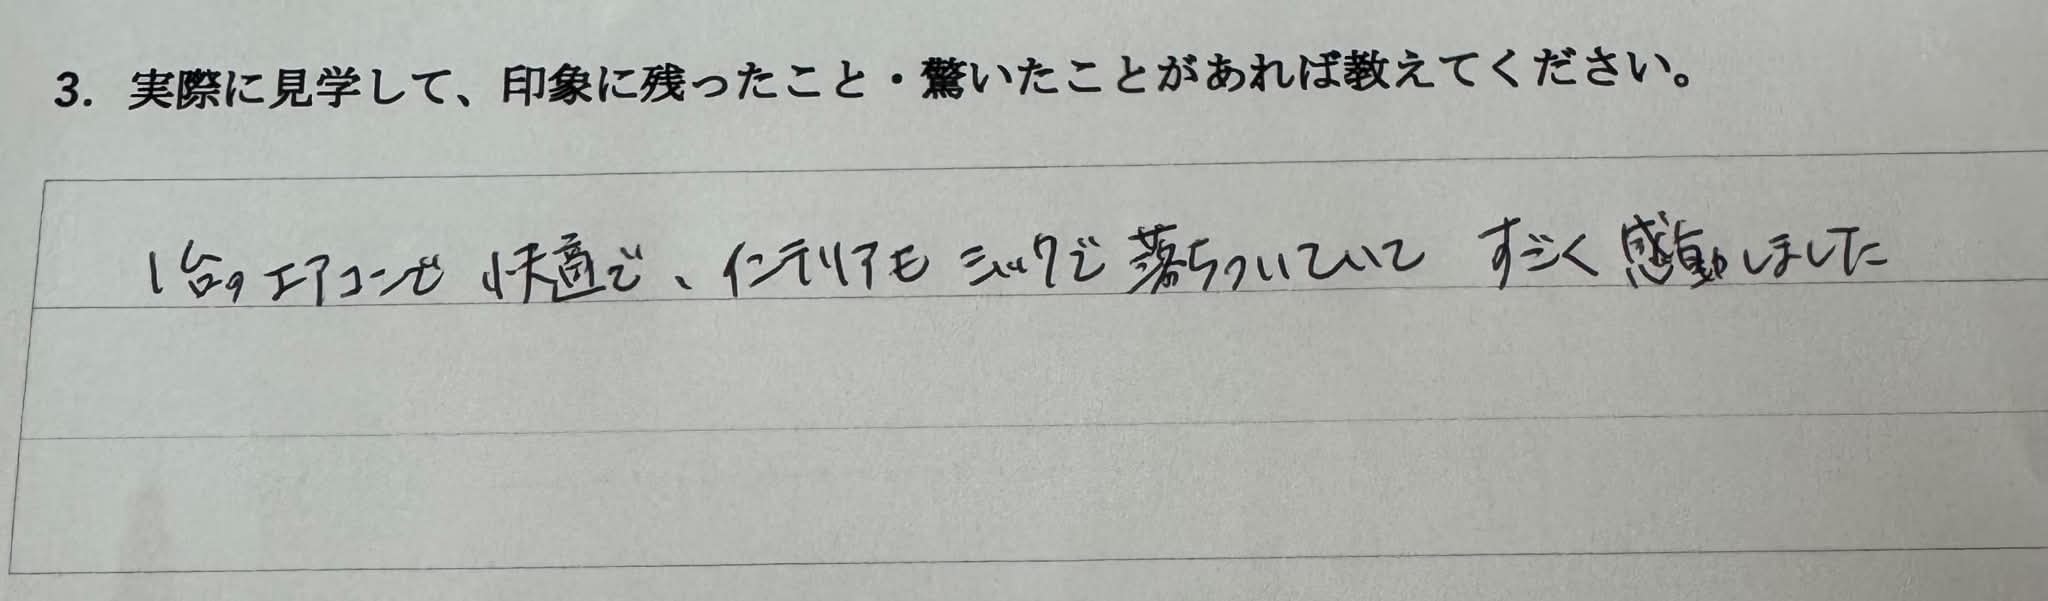 3. 実際に見学して、印象に残ったこと・驚いたことがあれば教えてください。
1台のエアコンで快適で、インテリアもシックで落ちついていて すごく感動しました